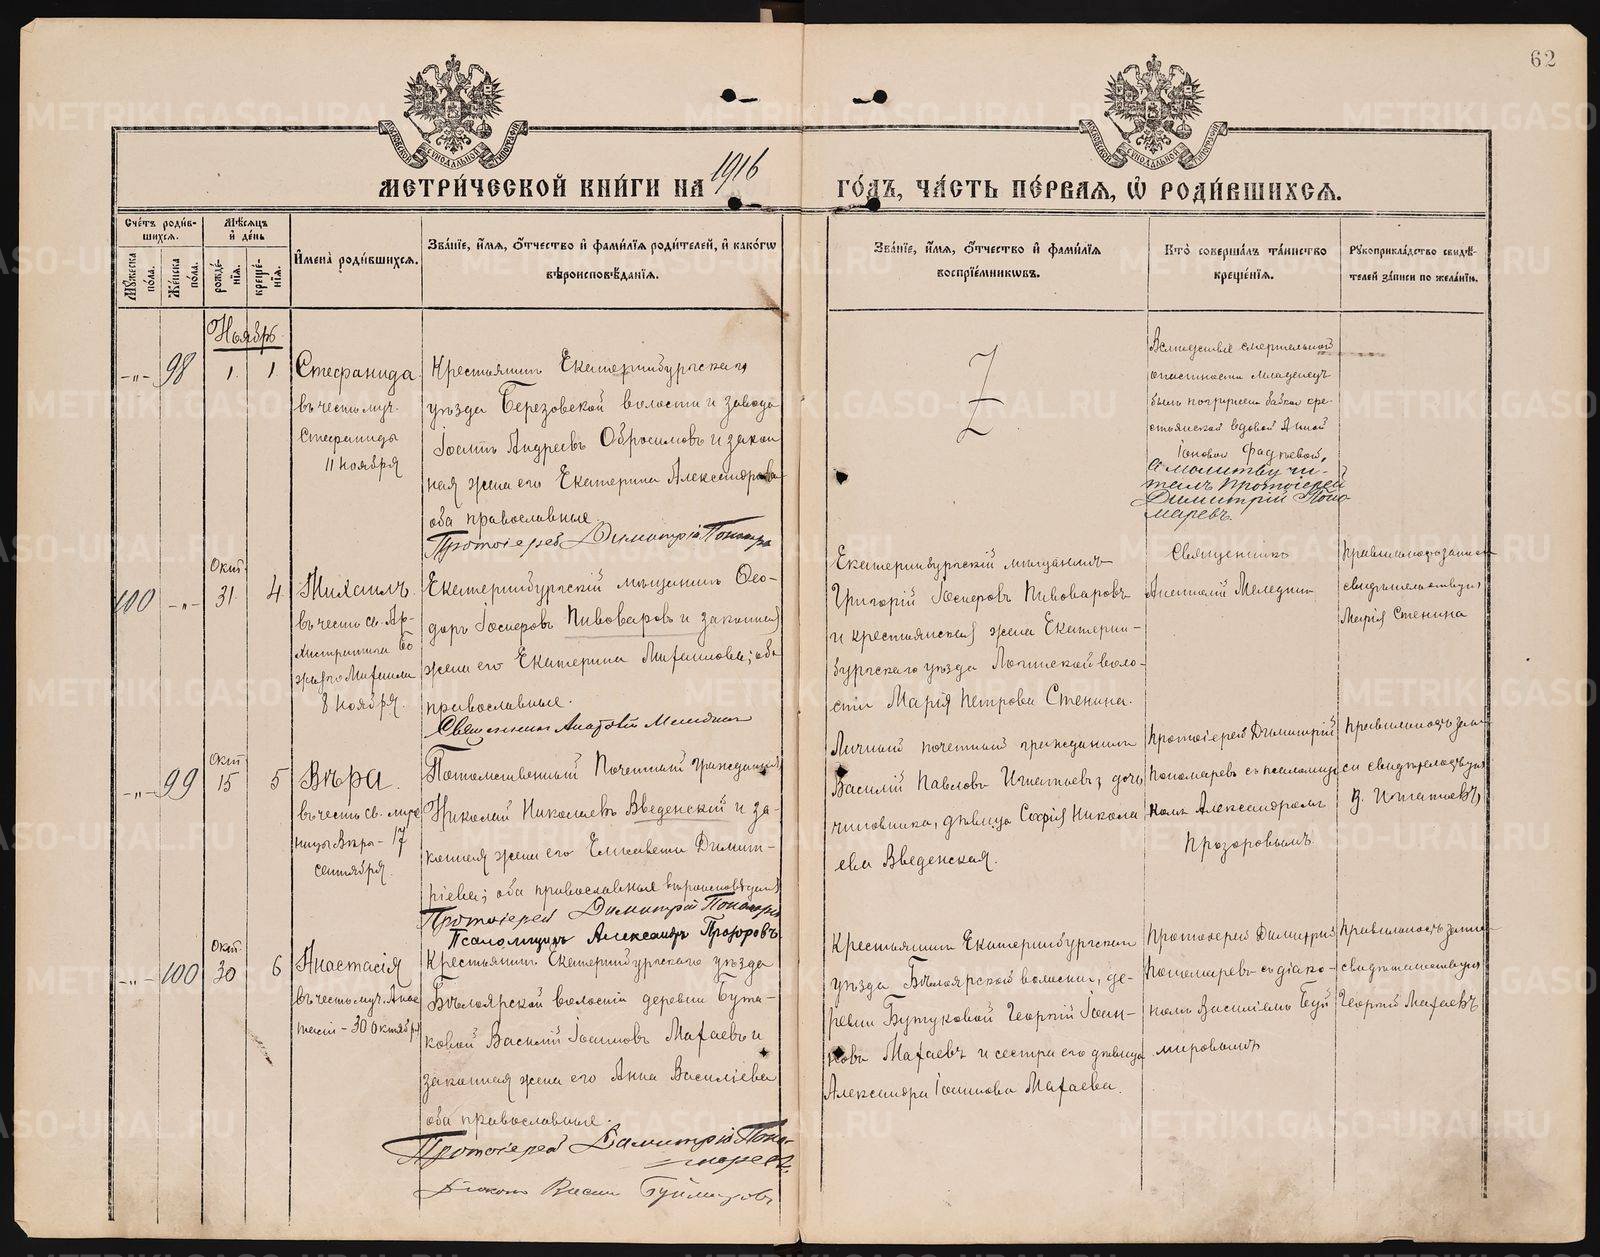 62
МОСКОВСКОЙ СѴНОДАЛЬНОЙ ТИПОГРАФІИ
МОСКОВСКОЙ СѴНОДАЛЬНОЙ ТИПОГРАФІИ
МЕТРИ́ЧЕСКОЙ КНИ́ГИ НА 1916
ГО́ДЪ, ЧА́СТЬ ПЕ́РВАѦ, Ѡ҆ РОДИ́ВШИХСѦ.
Сче́тъ роди́в-
шихсѧ.
Мѣ́сѧцъ
и҆ де́нь
Мꙋ́жеска
по́ла.
Же́нска
по́ла.
рожде́-
нїѧ.
креще́-
нїѧ.
И҆мена̀ роди́вшихсѧ.
Зва́нїе, и҆́мѧ, ѻ҆́тчество и҆ фами́лїѧ роди́телей, и҆ како́гѡ
вѣроисповѣ́данїѧ.
Зва́нїе, и҆́мѧ, ѻ҆́тчество и҆ фами́лїѧ
воспрїе́мникѡвъ.
Кто̀ соверша́лъ та́инство
креще́нїѧ.
Рꙋкоприкла́дство свидѣ́-
телей за́писи по жела́нїю.
Ноябрь
-"- 98 1. 1
Стефанида
въ честь муч.
Стефаниды
11 ноября
Крестьянинъ Екатеринбургскаго
уѣзда Березовской волости и завода
Іосифъ Андреевъ Обросимовъ и закон
ная жена его Екатерина Александрова
оба православные
Протоіерей Димитрій Пономарев
Вслѣдствіе смертельной
опасности младенецъ
былъ погруженъ бабкою кре-
стьянской вдовой Анной
Іоновой Фадѣевой,
а молитву чи-
талъ Протоіерей
Димитрій Поно
маревъ.
Окт.
100 -"- 31 4
Михаилъ
въ честь св. Ар-
хистратига Бо
жія Михаила
8 ноября.
Екатеринбургскій мѣщанинъ Ѳео-
доръ Іосифовъ Пивоваровъ и законная
жена его Екатерина Михаилова; оба
православные.
Священникъ Анатолій Меледин
Екатеринбургскій мѣщанинъ
Григорій Іосифовъ Пивоваровъ
и крестьянская жена Екатерин-
бургскаго уѣзда Логинской воло-
сти Марія Петрова Стенина.
Священникъ
Анатолій Меледин
Правильность записи
свидѣтельствую,
Марія Стенина
Окт
-"- 99 15 5
Вѣра.
въ честь св. муче
ницы Вѣры - 17
сентября.
Потомственный Почетный гражданинъ
Николай Николаевъ Введенскій и за-
конная жена его Елисавета Димит-
ріева; оба православные вѣроисповѣданія
Протоіерей Димитрій Пономарев
Псаломщикъ Александръ Прозоровъ
Личный почетный гражданинъ
Василій Павловъ Игнатьевъ, дочь
чиновника, дѣвица Софія Никола
ева Введенская.
Протоіерей Димитрій
Пономаревъ съ псаломщи
комъ Александромъ
Прозоровымъ
Правильность запи
си свидѣтельствую
В. Игнатьевъ,
Окт.
-"- 100 30 6
Анастасія
въ честь муч. Анас
тасіи - 30 октября
Крестьянинъ Екатеринбургскаго уѣзда
Бѣлоярской волости деревни Бута-
ковой Василій Іоанновъ Махаевъ и
законная жена его Анна Василіева
оба православные.
Протоіерей Димитрій Поно-
маревъ.
Діаконъ Васил Буймировъ
Крестьянинъ Екатеринбургскаго
уѣзда Бѣлоярской волости, де-
ревни Бутуковой Георгій Іоан-
новъ Махаевъ и сестра его дѣвица
Александра Іоаннова Махаева.
Протоіерей Димитрій
Пономаревъ съ діако-
номъ Василіемъ Буй
мировымъ
Правильность записи
свидѣтельствую
Георгій Махаевъ
METRIKI.GASO-URAL.RU